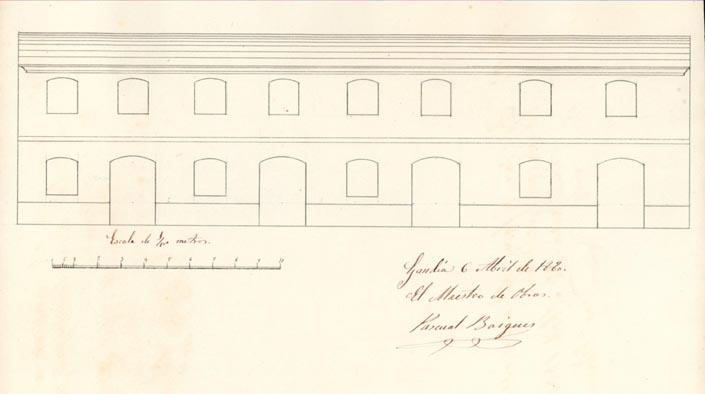 Escala de metros.
1 2 3 4 5 6 7 8 9 10
Gandia 6 Abril de 1880.
El Maestro de Obras.
Pascual Boigues